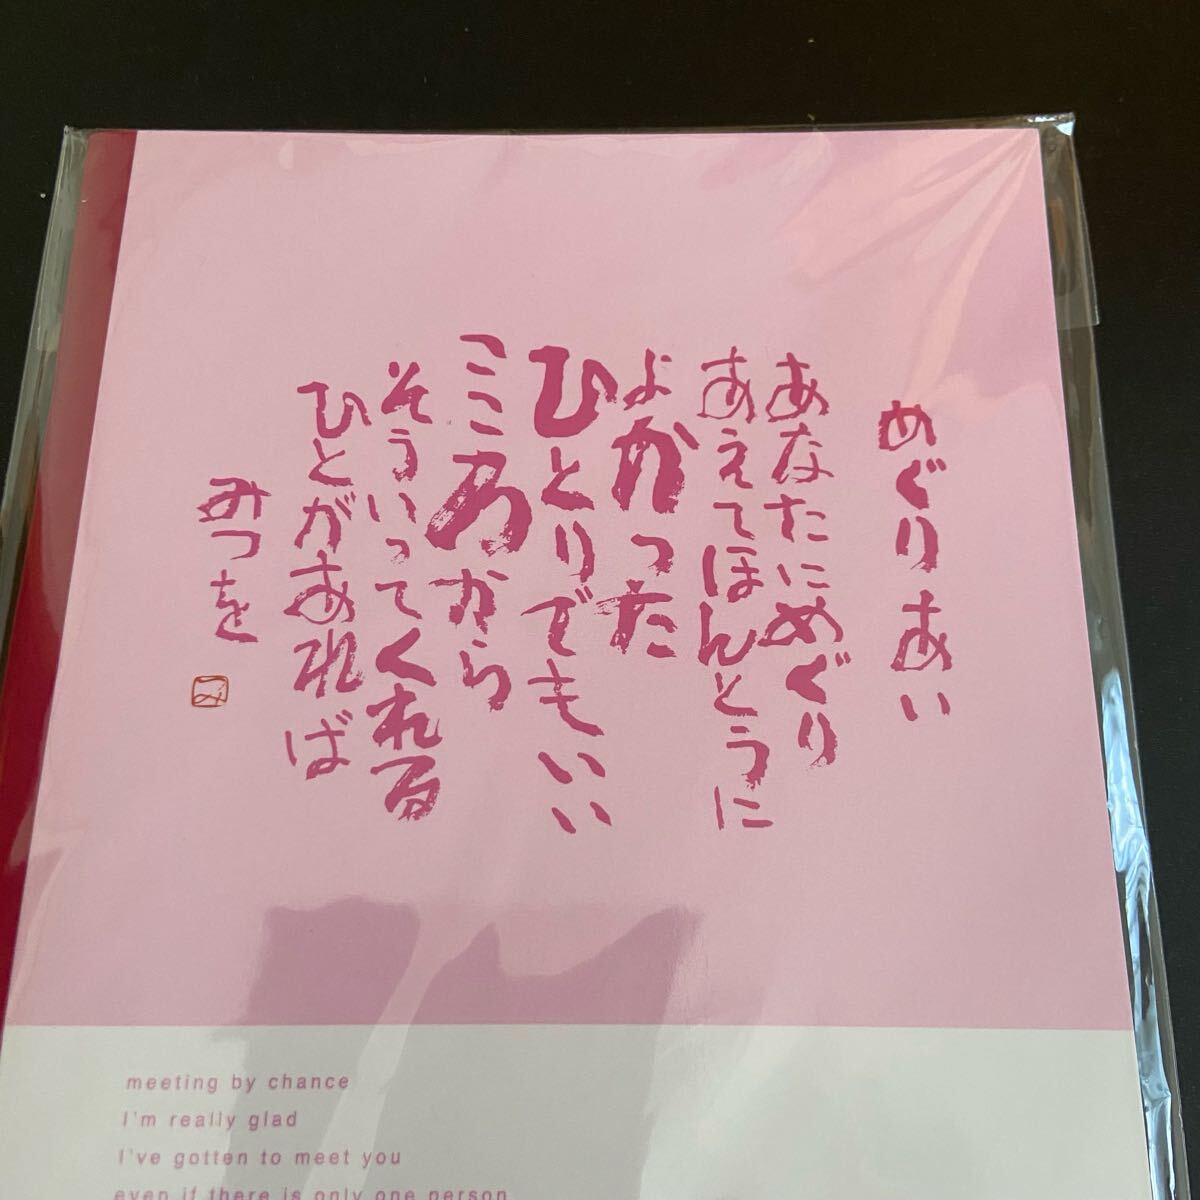 めぐりあい
あなたにめぐり
あえてほんとうに
よかった
ひとりでもいい
こころから
そういってくれる
ひとがあれば
みつを
meeting by chance
I'm really glad
I've gotten to meet you
even if there is only one person